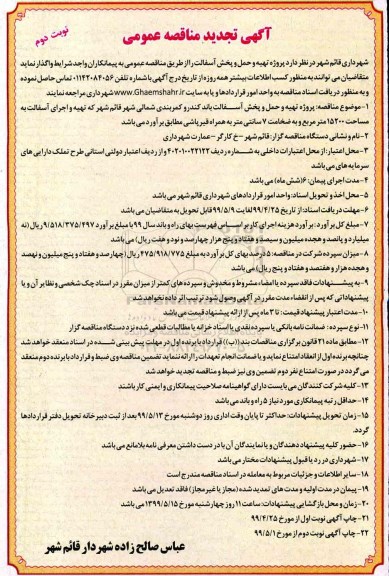 نوبت دوم
آگهی تجدید مناقصه عمومی
شهرداری قائم شهر در نظر دارد پروژه تهیه و حمل و پخش آسفالت را از طریق مناقصه عمومی به پیمانکاران واجد شرایط واگذار نماید
متقاضیان می توانند به منظور کسب اطلاعات بیشتر همه روزه از تاریخ درج آگهی با شماره تلفن ۰۱۱۴۲۰۸۴۰۵۶ تماس حاصل نموده
و به منظور دریافت اسناد مناقصه به واحد امور قراردادها و یا به سایت www.Ghaemshahr.ir شهرداری مراجعه نمایند
۱- موضوع مناقصه: پروژه تهیه و حمل و پخش آسفالت باند کندرو کمربندی شمالی شهر قائم شهر که تهیه و اجرای آسفالت به
مساحت ۱۵۲۰۰ متر مربع و به ضخامت ۷ سانتی متر به همراه قیرپاشی مطابق برآورد می باشد
۲- نام و نشانی دستگاه مناقصه گزار: قائم شهر - خ کارگر - عمارت شهرداری
۳- محل اعتبار: از محل اعتبارات داخلی به شماره ردیف ۴۰۲۰۱۰۰۲۲۱۲۲ و از ردیف اعتبار دولتی استانی طرح تملک دارایی های
سرمایه های می باشد
۴- مدت اجرای پیمان: ۶ (شش ماه) می باشد
۵- محل اخذ و تحویل اسناد: واحد امور قراردادهای شهرداری قائم شهر می باشد
۶- مهلت دریافت اسناد: از تاریخ ۹۹/۴/۲۵ لغایت ۹۹/۵/۹ قابل تحویل به متقاضیان می باشد
۷- مبلغ کل برآورد: برآورد هزینه اجرای کار بر اساس فهرست بهای راه و باند سال ۹۹ با مبلغ برآورد ۹/۵۱۸/۳۷۵/۴۹۷ ریال (نه
میلیارد و پانصد و هجده میلیون و سیصد و هفتاد و پنج هزار چهارصد و نود و هفت ریال) می باشد
۸- میزان سپرده شرکت در مناقصه: ۵ درصد بهای کل برآورد به مبلغ ۴۷۵/۹۱۸/۷۷۵ ریال (چهارصد و هفتاد و پنج میلیون و نهصد
و هجده هزار و هفتصد و هفتاد و پنج ریال) می باشد
۹- به پیشنهادات فاقد سپرده یا امضاء مشروط و مخدوش و سپرده های کمتر از میزان مقرر در اسناد چک شخصی و نظایر آن و یا
پیشنهاداتی که پس از انقضاء مدت مقرر در آگهی وصول شود ترتیب اثر داده نخواهد شد
۱۰- مدت اعتبار پیشنهاد قیمت: تا ۳ ماه پس از ارائه پیشنهاد قیمت می باشد
۱۱- نوع سپرده: ضمانت نامه بانکی یا سپرده نقدی یا اسناد خزانه یا مطالبات قطعی شده نزد دستگاه مناقصه گزار
۱۲- مطابق ماده ۲۱ قانون برگزاری مناقصات بند (ب) قرارداد با برنده اول در مهلت پیش بینی شده در اسناد منعقد خواهد شد
چنانچه برنده اول از انعقاد امتناع نماید و یا ضمانت انجام تعهدات را ارائه ننماید تضمین مناقصه وی ضبط و قرارداد با برنده دوم منعقد
می گردد در صورت امتناع نفر دوم تضمین وی نیز ضبط و مناقصه تجدید خواهد شد
۱۳- کلیه شرکت کنندگان می بایست دارای گواهینامه صلاحیت پیمانکاری و ایمنی کار باشند
۱۴- حداقل رتبه پیمانکاری مورد نیاز ۵ راه و باند می باشد
۱۵- زمان تحویل پیشنهادات: حداکثر تا پایان وقت اداری روز دوشنبه مورخ ۹۹/۵/۱۳ بعد از ثبت دبیرخانه تحویل دفتر قراردادها
گردد.
۱۶- حضور کلیه پیشنهاد دهندگان و یا نمایندگان آن با در دست داشتن معرفی نامه بلامانع می باشد
۱۷- شهرداری در رد یا قبول پیشنهادات مختار می باشد
۱۸- سایر اطلاعات و جزئیات مربوط به معامله در اسناد مناقصه مندرج است
۱۹- پیمان در مدت اولیه و مدت های تمدید شده (مجاز یا غیر مجاز) فاقد تعدیل می باشد
۲۰- زمان و محل بازگشایی پیشنهادات: ساعت ۱۱ روز چهارشنبه مورخ ۱۳۹۹/۵/۱۵ می باشد
۲۱- چاپ آگهی نوبت اول از مورخ ۹۹/۴/۲۵
۲۲- چاپ آگهی نوبت دوم از مورخ ۹۹/۵/۱
عباس صالح زاده شهردار قائم شهر